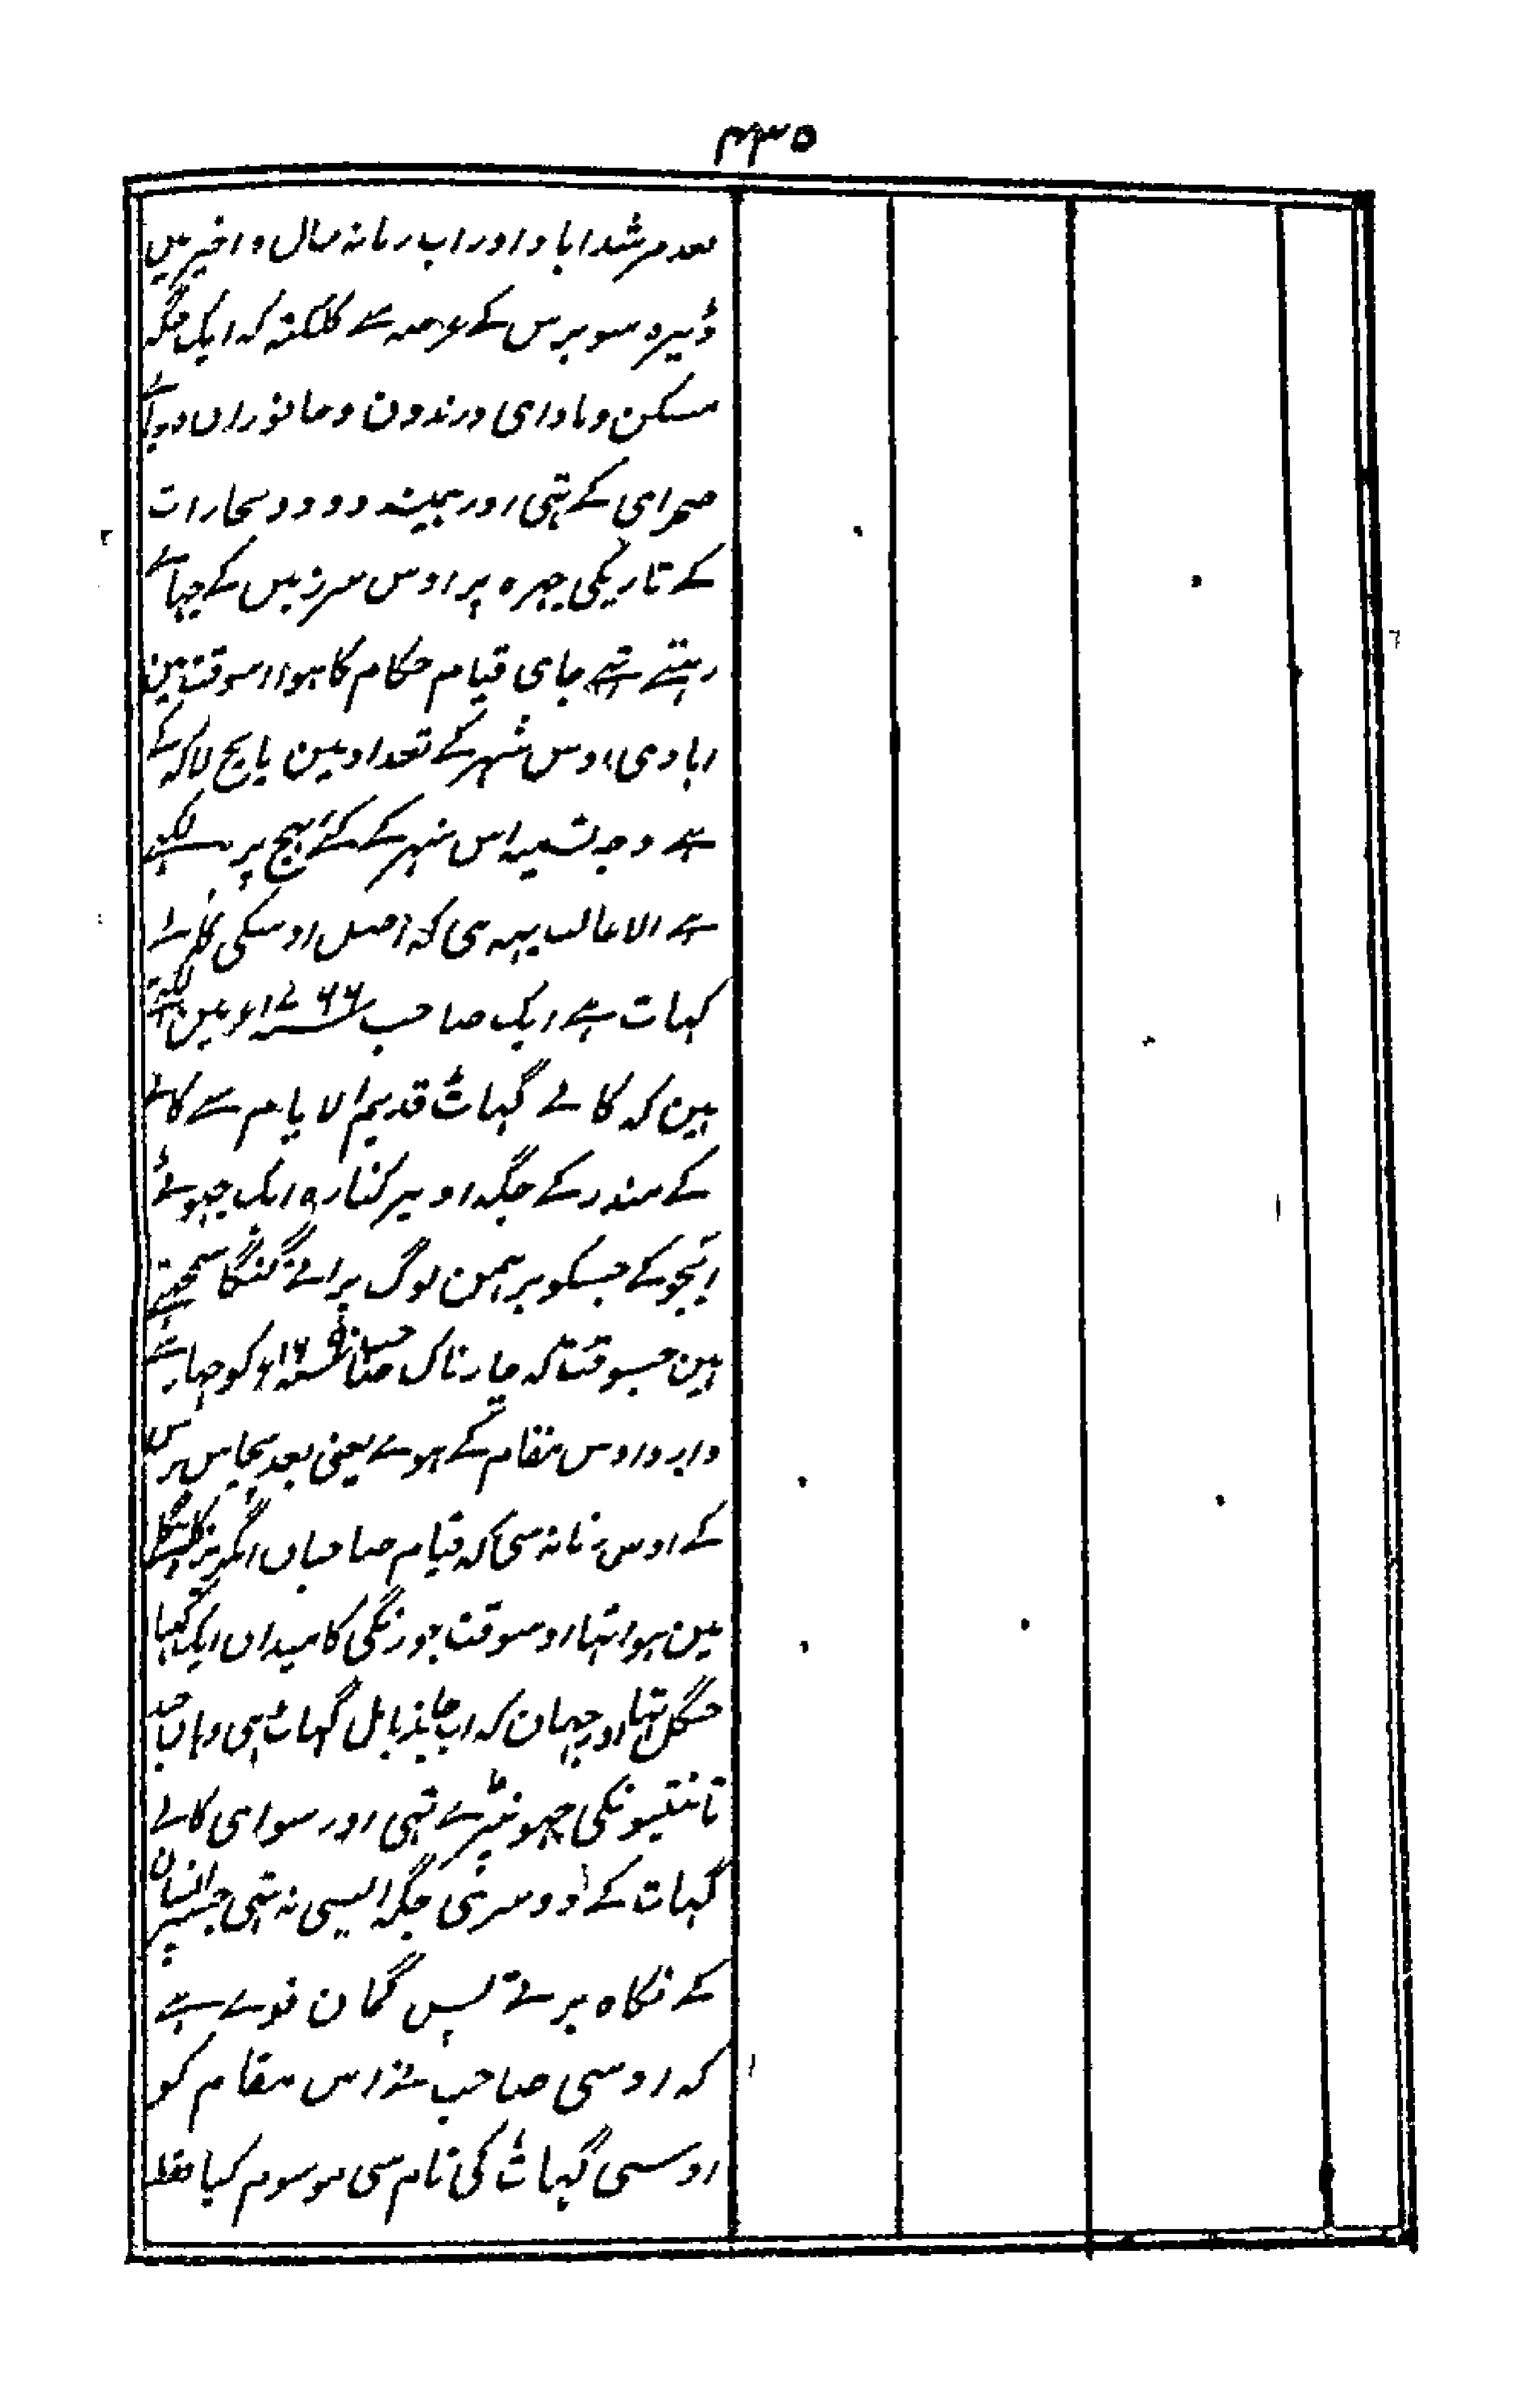 ۴۳۵
بعد مرشداباد اور اب زمانہ سال و اخیر میں
ڈیڑہ سو برس کے عرصہ سے کلکتہ کہ ایک جگہ
مسکن و ماوای درندون و جانوران
صحرای کے تہی اور ہمیشہ دود و بخارات
کے تاریکی چہرہ پر اوس سرزمین کے چہاے
رہتے تہے جای قیام حکام کا ہوا اسوقت مین
ابادی اوس شہر کے تعداد مین پانچ لاکہ کے
ہے وجہ تسمیہ اس شہر کے کئے نہج پر
ہے الا غالب یہہ ہی کہ اصل اوسکی کالے
کہات ہے ایک صاحب سنہ ۱۷۶۶ء مین
ہین کہ کالے گہاٹ قدیم الایام سے کالے
کے مندر کے جگہ اوپر کنارہ ایک چہوٹے
کے جسکو برہمن لوگ پرانے گنگا سمجہتے
ہین جسوقت کہ چارناک صاحب سنہ ۱۶ء کو
وارد اوس مقام کے ہوے یعنی بعد پچاس برس
کے اوس زمانہ سی کہ قیام صاحبان انگریز کا بنگالہ
مین ہوا تہا اوسوقت چورنگی کا میدان ایک گہنا
جنگل تہا اور جہان کہ اب چاندپال گہاٹ ہی وہان چند
تانتیونکی جہونپڑے تہی اور سوای کالے
گہات کے دوسری جگہ ایسی نہ تہی جسپر انسان
کے نگاہ پڑتے پس گمان قوے ہے
کہ اوسی صاحب نے اس مقام کو
اوسی گہاٹ کی نام سی موسوم کیا فقط